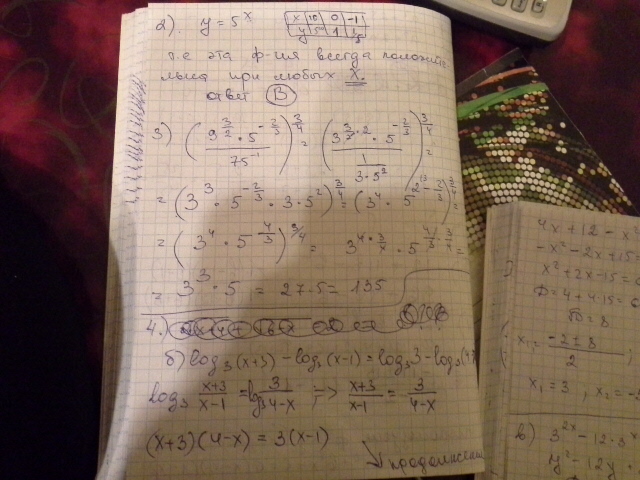 2). y = 5^x
x 10 0 -1
y 5 1 1/5
т.е эта ф-ия всегда положите
льна при любых X.
ответ B
3) ((9^(3/2) · 5^(-2/3)) / 75^(-1))^(3/4) = ((3^(3/2 · 2) · 5^(-2/3)) / (1/(3·5^2)))^(3/4) =
= (3^3 · 5^(-2/3) · 3 · 5^2)^(3/4) = (3^4 · 5^(2 - 2/3))^(3/4) =
= (3^4 · 5^(4/3))^(3/4) = 3^(4 · 3/4) · 5^(4/3 · 3/4) =
= 3^3 · 5 = 27·5 = 135
4.)
б) log3 (x+3) - log3 (x-1) = log3 3 - log3
log3 (x+3)/(x-1) = log3 3/(4-x) => (x+3)/(x-1) = 3/(4-x)
(x+3)(4-x) = 3(x-1)
продолжение
4x + 12 - x^2
-x^2 - 2x + 15 =
x^2 + 2x - 15 =
D = 4 + 4·15 = 6
√D = 8
x1,2 = (-2 ± 8)/2 ;
x1 = 3 , x2 = -5
в) 3^(2x) - 12·3^x
y^2 - 12y